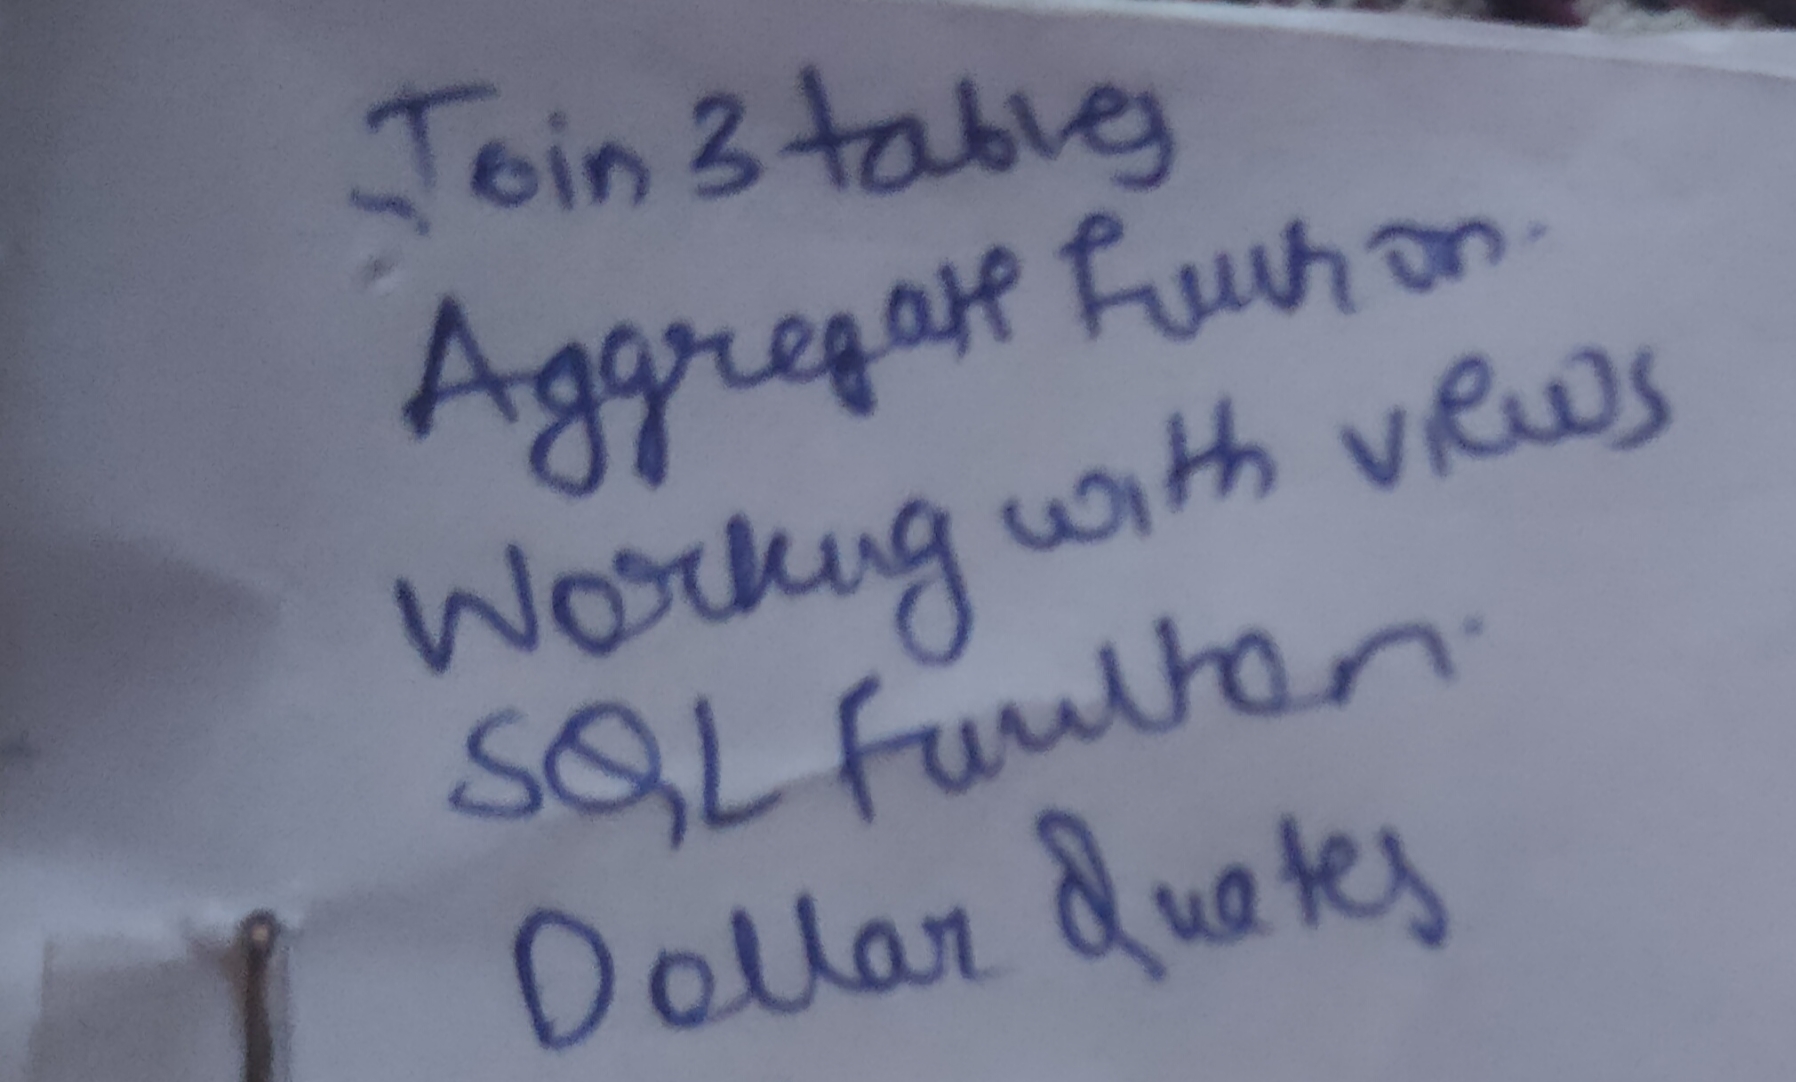 Join 3 tables
Aggregate function.
Working with views
SQL function.
Dollar Quotes